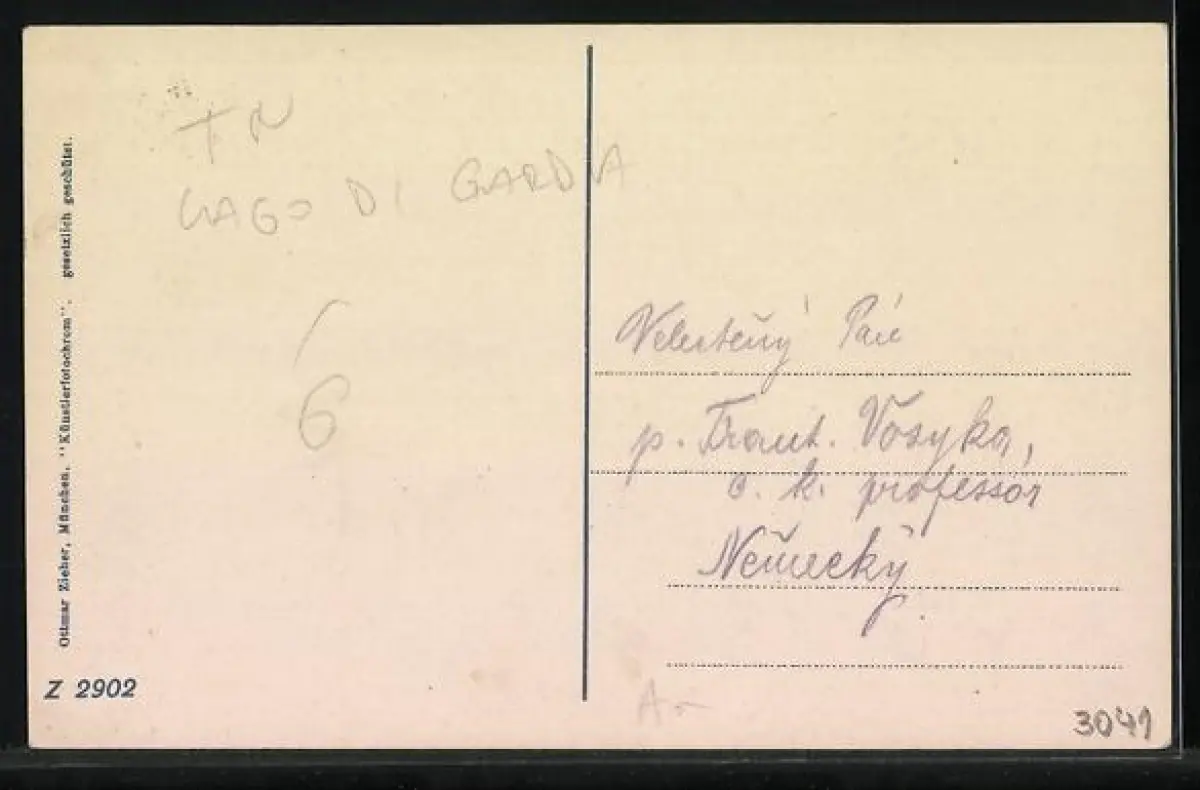 Ottmar Zieher, München. "Künstlerfotochrom". gesetzlich geschützt.
Z 2902
TN
LAGO DI GARDA
6
Velectěný Pán
p. Frant. Vosyka,
c. k. professór
Německý
A-
3041